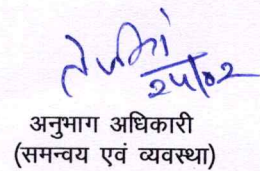 25/02
अनुभाग अधिकारी
(समन्वय एवं व्यवस्था)